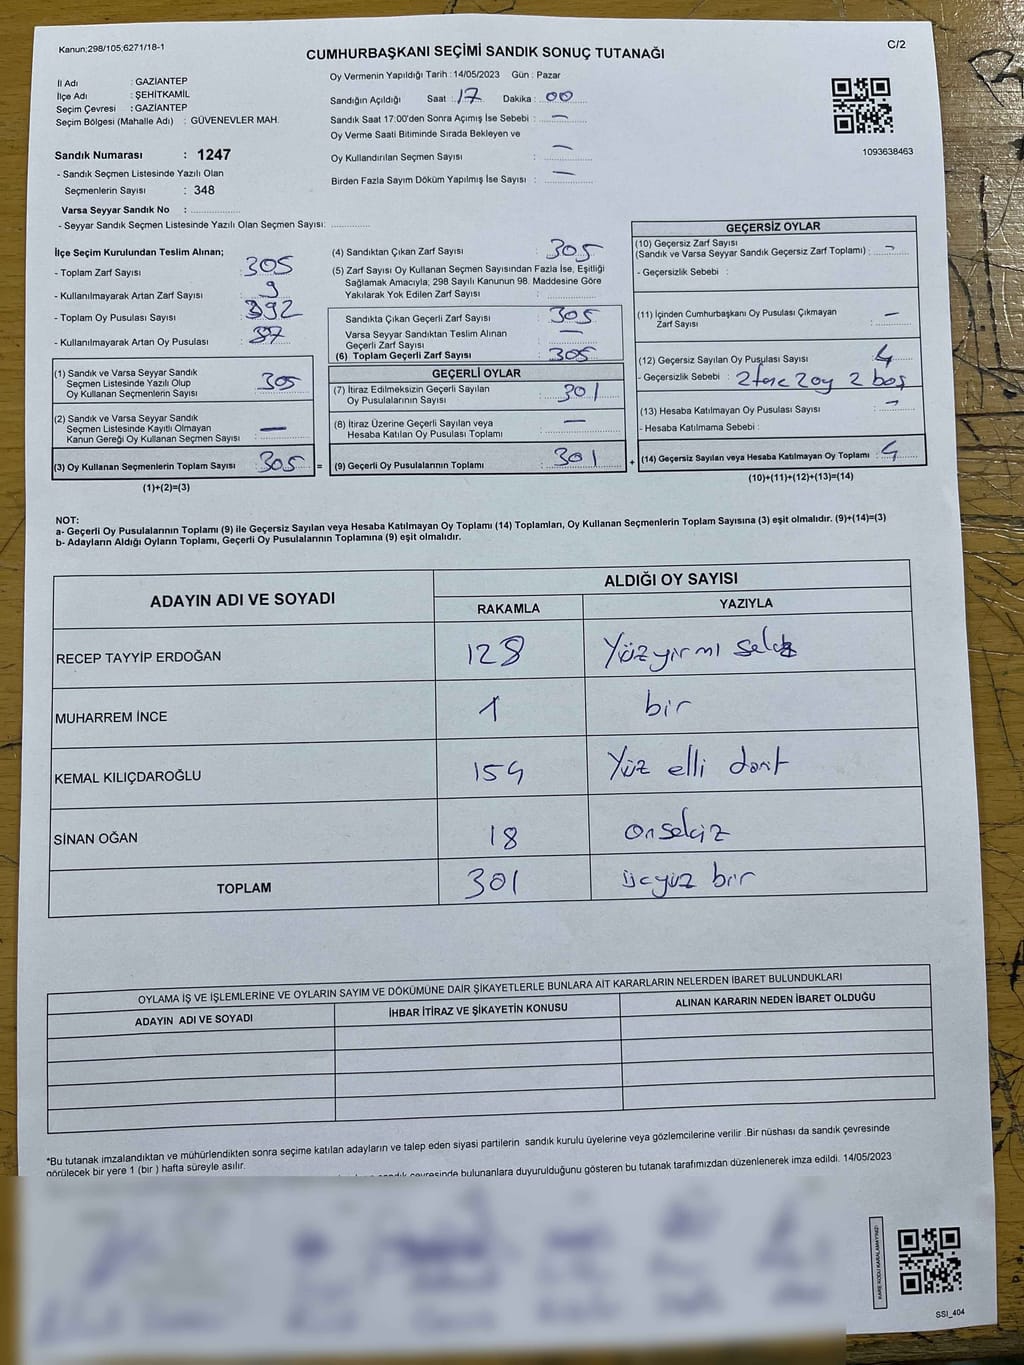 Kanun;298/105;6271/18-1
C/2
CUMHURBAŞKANI SEÇİMİ SANDIK SONUÇ TUTANAĞI
İl Adı : GAZİANTEP
İlçe Adı : ŞEHİTKAMİL
Seçim Çevresi : GAZİANTEP
Seçim Bölgesi (Mahalle Adı) : GÜVENEVLER MAH.
Sandık Numarası : 1247
- Sandık Seçmen Listesinde Yazılı Olan
Seçmenlerin Sayısı : 348
Varsa Seyyar Sandık No : ..................
- Seyyar Sandık Seçmen Listesinde Yazılı Olan Seçmen Sayısı: ..............
Oy Vermenin Yapıldığı Tarih : 14/05/2023 Gün : Pazar
Sandığın Açıldığı Saat : 17 Dakika : 00
Sandık Saat 17:00'den Sonra Açımış İse Sebebi : —
Oy Verme Saati Bitiminde Sırada Bekleyen ve
Oy Kullandırılan Seçmen Sayısı : —
Birden Fazla Sayım Döküm Yapılmış İse Sayısı : —
1093638463
İlçe Seçim Kurulundan Teslim Alınan;
- Toplam Zarf Sayısı : 305
- Kullanılmayarak Artan Zarf Sayısı : 9
- Toplam Oy Pusulası Sayısı : 392
- Kullanılmayarak Artan Oy Pusulası : 87
(1) Sandık ve Varsa Seyyar Sandık
Seçmen Listesinde Yazılı Olup
Oy Kullanan Seçmenlerin Sayısı : 305
(2) Sandık ve Varsa Seyyar Sandık
Seçmen Listesinde Kayıtlı Olmayan
Kanun Gereği Oy Kullanan Seçmen Sayısı : —
(3) Oy Kullanan Seçmenlerin Toplam Sayısı : 305 =
(1)+(2)=(3)
(4) Sandıktan Çıkan Zarf Sayısı : 305
(5) Zarf Sayısı Oy Kullanan Seçmen Sayısından Fazla İse, Eşitliği
Sağlamak Amacıyla; 298 Sayılı Kanunun 98. Maddesine Göre
Yakılarak Yok Edilen Zarf Sayısı :
Sandıkta Çıkan Geçerli Zarf Sayısı : 305
Varsa Seyyar Sandıktan Teslim Alınan
Geçerli Zarf Sayısı : —
(6) Toplam Geçerli Zarf Sayısı : 305
GEÇERLİ OYLAR
(7) İtiraz Edilmeksizin Geçerli Sayılan
Oy Pusulalarının Sayısı : 301
(8) İtiraz Üzerine Geçerli Sayılan veya
Hesaba Katılan Oy Pusulası Toplamı : —
(9) Geçerli Oy Pusulalarının Toplamı : 301 +
GEÇERSİZ OYLAR
(10) Geçersiz Zarf Sayısı
(Sandık ve Varsa Seyyar Sandık Geçersiz Zarf Toplamı) : —
- Geçersizlik Sebebi :
(11) İçinden Cumhurbaşkanı Oy Pusulası Çıkmayan
Zarf Sayısı : —
(12) Geçersiz Sayılan Oy Pusulası Sayısı : 4
- Geçersizlik Sebebi : 2 oy 2 boş
(13) Hesaba Katılmayan Oy Pusulası Sayısı : —
- Hesaba Katılmama Sebebi :
(14) Geçersiz Sayılan veya Hesaba Katılmayan Oy Toplamı : 4
(10)+(11)+(12)+(13)=(14)
NOT:
a- Geçerli Oy Pusulalarının Toplamı (9) ile Geçersiz Sayılan veya Hesaba Katılmayan Oy Toplamı (14) Toplamları, Oy Kullanan Seçmenlerin Toplam Sayısına (3) eşit olmalıdır. (9)+(14)=(3)
b- Adayların Aldığı Oyların Toplamı, Geçerli Oy Pusulalarının Toplamına (9) eşit olmalıdır.
ADAYIN ADI VE SOYADI
ALDIĞI OY SAYISI
RAKAMLA YAZIYLA
RECEP TAYYİP ERDOĞAN 128 Yüzyirmi sekiz
MUHARREM İNCE 1 bir
KEMAL KILIÇDAROĞLU 154 Yüz elli dört
SİNAN OĞAN 18 Onsekiz
TOPLAM 301 üçyüz bir
OYLAMA İŞ VE İŞLEMLERİNE VE OYLARIN SAYIM VE DÖKÜMÜNE DAİR ŞİKAYETLERLE BUNLARA AİT KARARLARIN NELERDEN İBARET BULUNDUKLARI
ADAYIN ADI VE SOYADI İHBAR İTİRAZ VE ŞİKAYETİN KONUSU ALINAN KARARIN NEDEN İBARET OLDUĞU
*Bu tutanak imzalandıktan ve mühürlendikten sonra seçime katılan adayların ve talep eden siyasi partilerin sandık kurulu üyelerine veya gözlemcilerine verilir .Bir nüshası da sandık çevresinde
görülecek bir yere 1 (bir ) hafta süreyle asılır.
sandık çevresinde bulunanlara duyurulduğunu gösteren bu tutanak tarafımızdan düzenlenerek imza edildi. 14/05/2023
KARE KODU KARALAMAYINIZ!
SSI_404